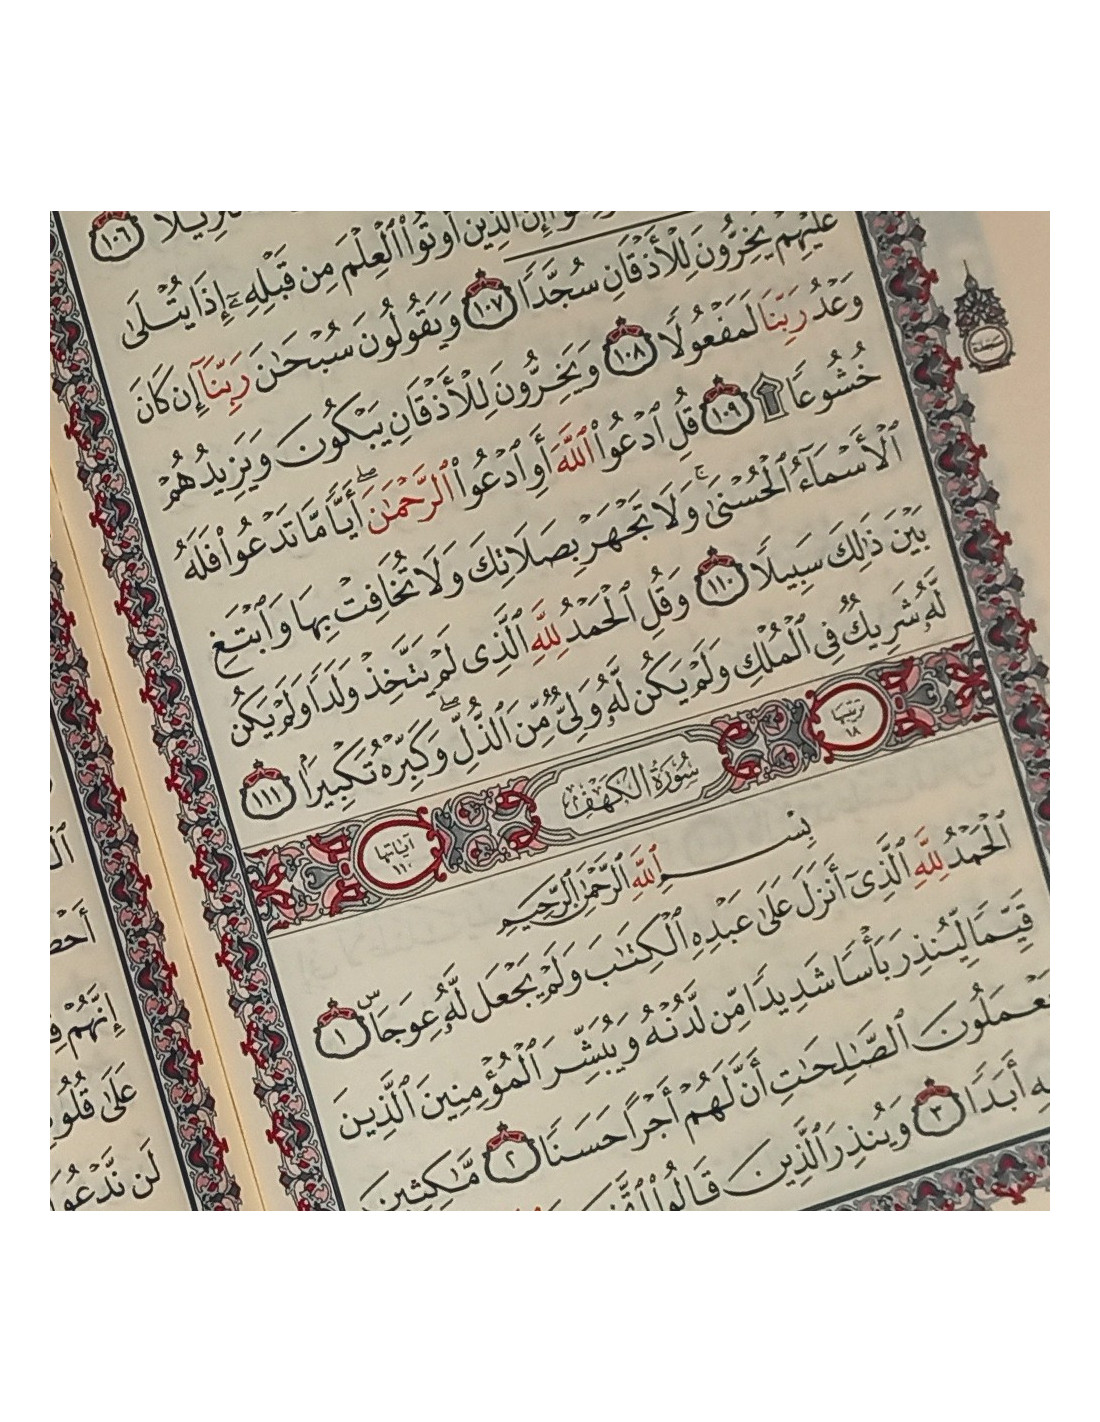 ١٠٦
إِنَّ ٱلَّذِينَ أُوتُوا۟ ٱلْعِلْمَ مِن قَبْلِهِۦٓ إِذَا يُتْلَىٰ
عَلَيْهِمْ يَخِرُّونَ لِلْأَذْقَانِ سُجَّدًا ١٠٧ وَيَقُولُونَ سُبْحَٰنَ رَبِّنَآ إِن كَانَ
وَعْدُ رَبِّنَا لَمَفْعُولًا ١٠٨ وَيَخِرُّونَ لِلْأَذْقَانِ يَبْكُونَ وَيَزِيدُهُمْ
خُشُوعًا ۩ ١٠٩ قُلِ ٱدْعُوا۟ ٱللَّهَ أَوِ ٱدْعُوا۟ ٱلرَّحْمَٰنَ ۖ أَيًّا مَّا تَدْعُوا۟ فَلَهُ
ٱلْأَسْمَآءُ ٱلْحُسْنَىٰ ۚ وَلَا تَجْهَرْ بِصَلَاتِكَ وَلَا تُخَافِتْ بِهَا وَٱبْتَغِ
بَيْنَ ذَٰلِكَ سَبِيلًا ١١٠ وَقُلِ ٱلْحَمْدُ لِلَّهِ ٱلَّذِى لَمْ يَتَّخِذْ وَلَدًا وَلَمْ يَكُن
لَّهُۥ شَرِيكٌ فِى ٱلْمُلْكِ وَلَمْ يَكُن لَّهُۥ وَلِىٌّ مِّنَ ٱلذُّلِّ ۖ وَكَبِّرْهُ تَكْبِيرًۢا ١١١
ترتيبها ١٨ سُورَةُ الكَهْفِ آياتها ١١٠
بِسْمِ ٱللَّهِ ٱلرَّحْمَٰنِ ٱلرَّحِيمِ
ٱلْحَمْدُ لِلَّهِ ٱلَّذِىٓ أَنزَلَ عَلَىٰ عَبْدِهِ ٱلْكِتَٰبَ وَلَمْ يَجْعَل لَّهُۥ عِوَجَاۜ ١
قَيِّمًا لِّيُنذِرَ بَأْسًا شَدِيدًا مِّن لَّدُنْهُ وَيُبَشِّرَ ٱلْمُؤْمِنِينَ ٱلَّذِينَ
يَعْمَلُونَ ٱلصَّٰلِحَٰتِ أَنَّ لَهُمْ أَجْرًا حَسَنًا ٢ مَّٰكِثِينَ
أَبَدًا ٣ وَيُنذِرَ ٱلَّذِينَ قَالُوا۟
إِنَّهُمْ
عَلَىٰ
لَن نَّدْعُوَا۟